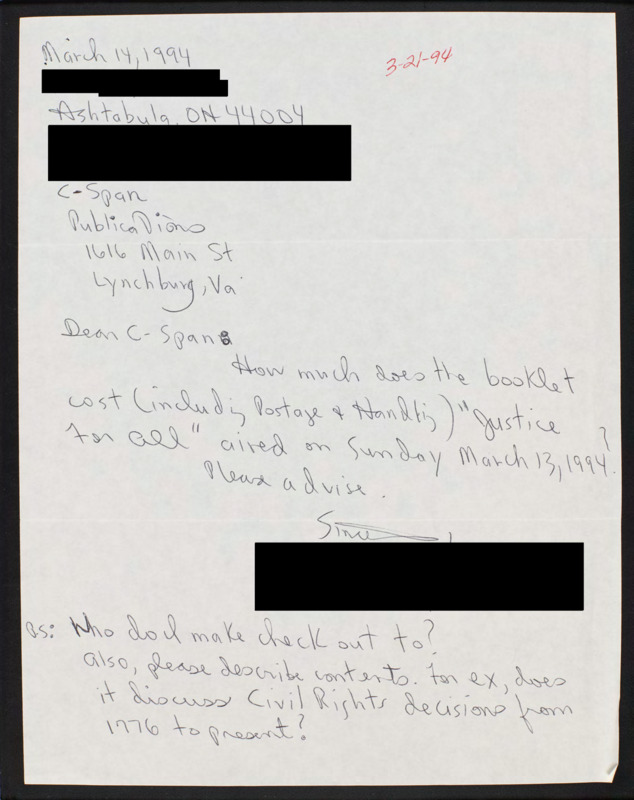 March 14, 1994
3-21-94
Ashtabula, OH 44004
C-Span
Publications
1616 Main St
Lynchburg, Va
Dear C-Span:
How much does the booklet
cost (includig Postage & Handlig) "Justice
For all" aired on Sunday March 13, 1994?
Please advise.
PS: Who do I make check out to?
also, please describe contents. For ex, does
it discuss Civil Rights decisions from
1776 to present?